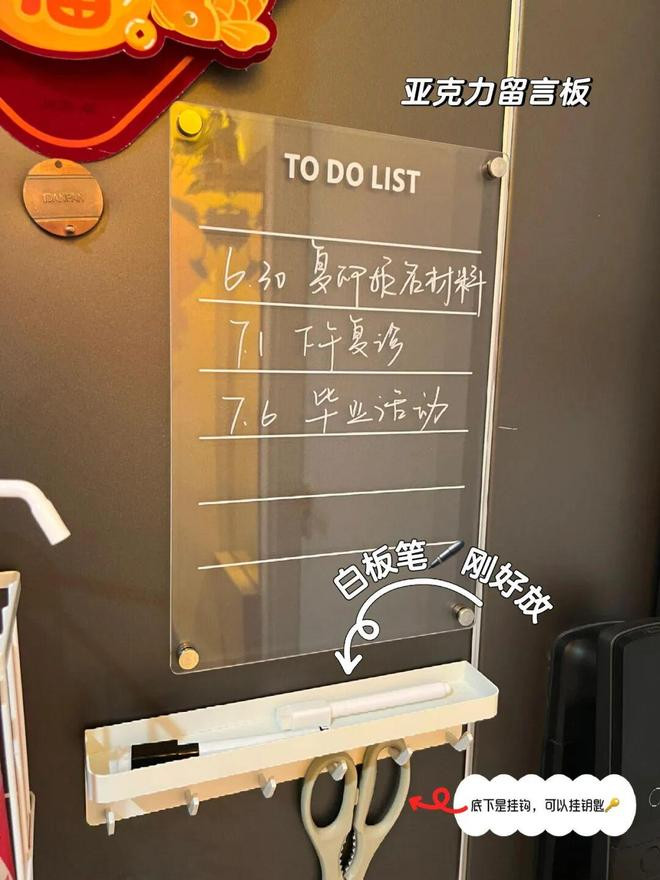 福
亚克力留言板
TO DO LIST
6.30 复研报名材料
7.1 下午复诊
7.6 毕业活动
白板笔 刚好放
底下是挂钩，可以挂钥匙🔑